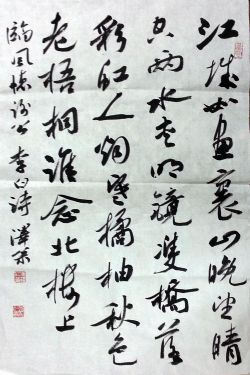 江城如畫裏山晚望晴
空兩水夾明鏡雙橋落
彩虹人烟寒橘柚秋色
老梧桐誰念北樓上
臨風懷謝公 李白詩